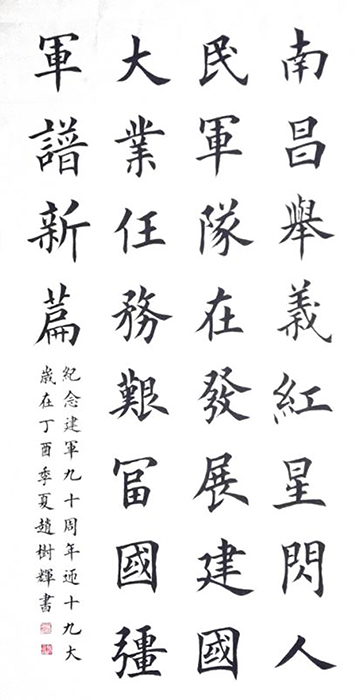 南昌舉義紅星閃人
民軍隊在發展建國
大業任務艱冨國彊
軍譜新篇
紀念建軍九十周年迎十九大
歲在丁酉季夏趙樹輝書